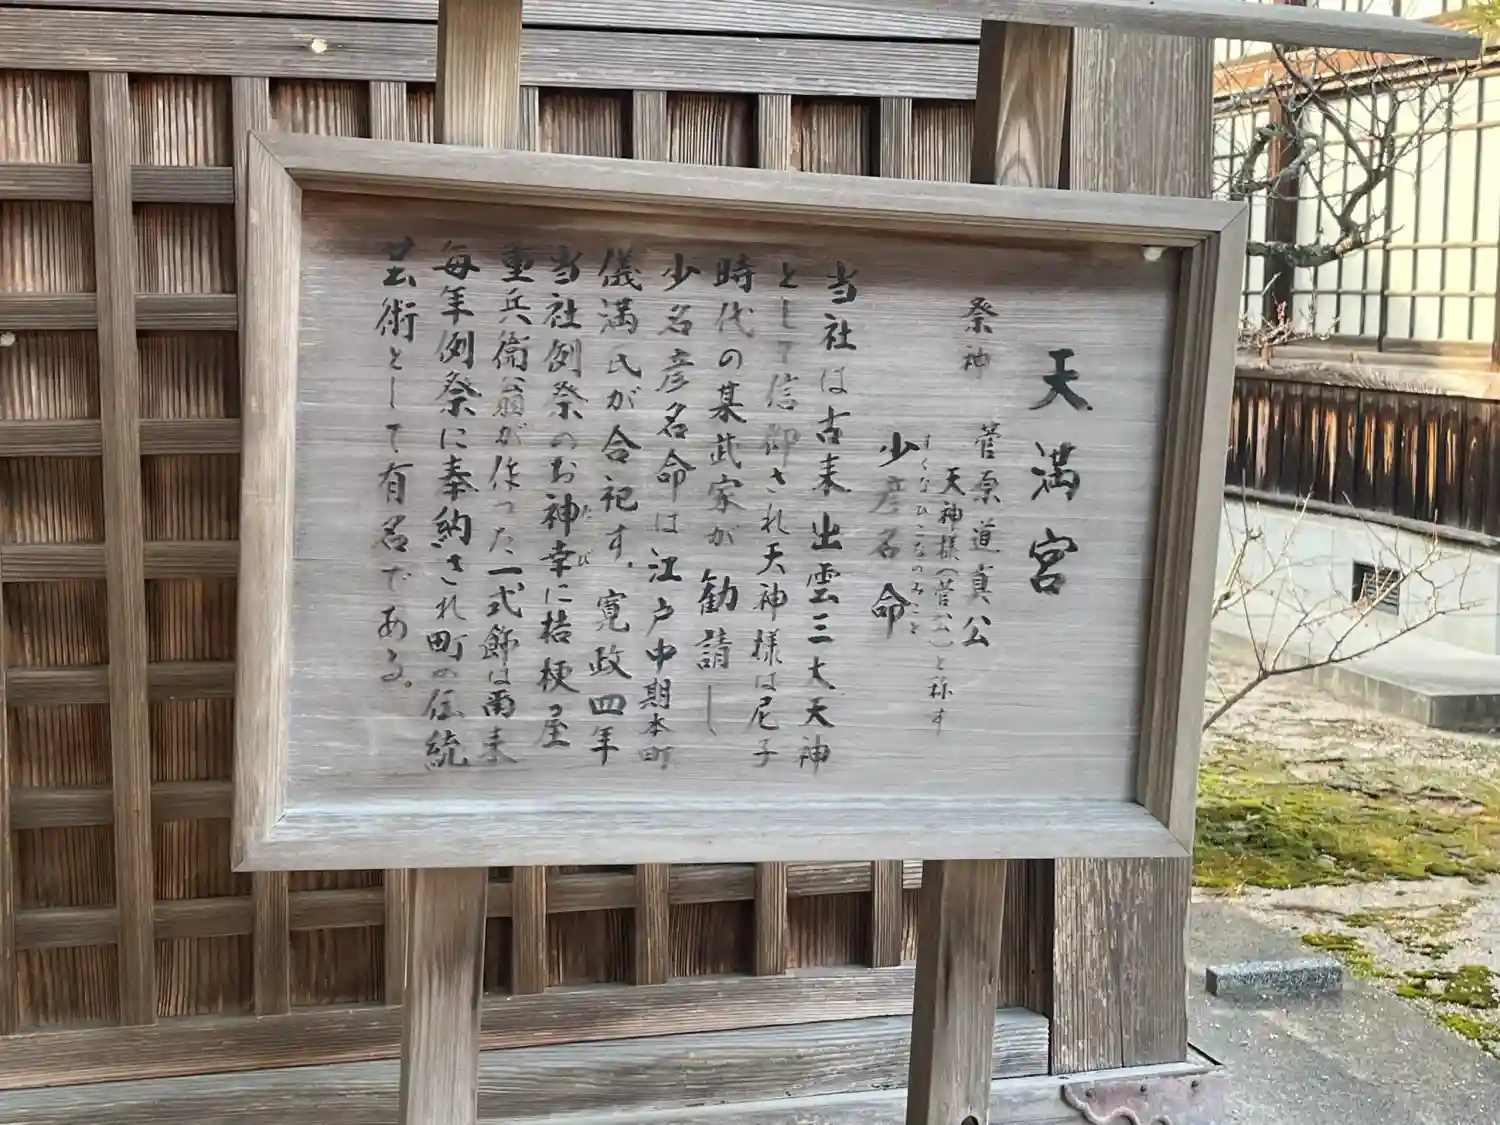 天満宮
祭神 菅原道真公
天神様(菅公)と称す
すくなひこなのみこと
少彦名命
当社は古来出雲三大天神
として信仰され天神様は尼子
時代の某武家が勧請し
少名彦名命は江戸中期本町
儀満氏が合祀す。寛政四年
たび
当社例祭のお神幸に桔梗屋
重兵衛翁が作った一式飾は爾来
毎年例祭に奉納され町の伝統
芸術として有名である。